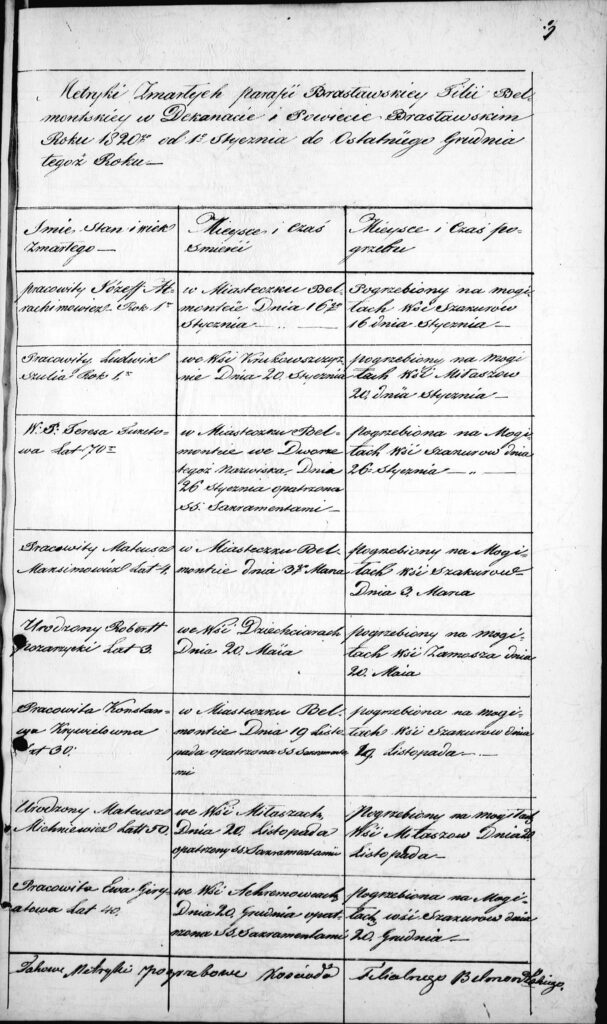 Metryki Zmarłych parafii Brasławskiey Filii Bel-
montskiey w Dekanacie i Powiecie Brasławskim
Roku 1820go od 1o Stycznia do Ostatniego Grudnia
tegoż Roku —
Imie, Stan i wiek
Zmarłego —
Mieysce i Czas
Smierci
Mieysce i Czas po-
grzebu
pracowity Józeff A-
rachimowicz Rok 1n
w Miasteczku Bel-
montcie Dnia 16go
Stycznia —
Pogrzebiony na mogi-
łach Wsi Szakurów
16 dnia Stycznia —
Pracowity Ludwik
Szulia Rok 1.
we Wsi Krukowszczyz-
nie Dnia 20 Stycznia
pogrzebiony na mogi-
łach Wsi Miłaszow
20 dnia Stycznia —
W. P. Teresa
Lat 70
w Miasteczku Bel-
montcie we Dworze
tegoż Nazwiska Dnia
26 Stycznia opatrzona
SS. Sakramentami —
pogrzebiona na Mogi-
łach Wsi Szakurow dnia
26 Stycznia —
Pracowity Mateusz
Maksimowicz Lat 4.
w Miasteczku Bel-
montcie dnia 3go Marca
pogrzebiony na Mogi-
łach Wsi Szakurow
Dnia 3. Marca
Urodzony Robertt
Lat 3
we Wsi Dziechciarach
Dnia 20 Maia
pogrzebiony na mogi-
łach Wsi Zamosza dnia
20 Maia
Pracowita Konstan-
cya Krywelowna
Lat 30.
w Miasteczku Bel-
montcie Dnia 19 Listo-
pada opatrzona SS Sakramen-
tami
pogrzebiona na mogi-
łach Wsi Szakurów dnia
19 Listopada —
Urodzony Mateusz
Michniewicz Latt 50.
we Wsi Miłaszach
Dnia 20. Listopada
opatrzony SS. Sakramentami
Pogrzebiony na mogiłach
Wsi Miłaszow Dnia 20
Listopada —
Pracowita Ewa Giry-
atowa Lat 40.
we Wsi Achremowcach
Dnia 20 Grudnia opat-
rzona SS. Sakramentami
pogrzebiona na Mogi-
łach wsi Szakurów dnia
20 Grudnia —
Takowe Metryki pogrzebowe Kościoła Filialnego Belmontskiego.